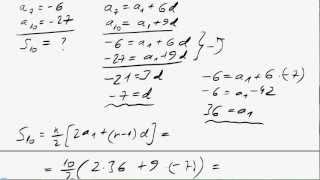 a₇ = -6
a₁₀ = -27
S₁₀ = ?
a₇ = a₁ + 6d
a₁₀ = a₁ + 9d
-6 = a₁ + 6d
-27 = a₁ + 9d
-21 = 3d
-7 = d
-6 = a₁ + 6·(-7)
-6 = a₁ - 42
36 = a₁
S₁₀ = n/2 [2a₁ + (n-1)d] =
= 10/2 (2·36 + 9(-7)) =